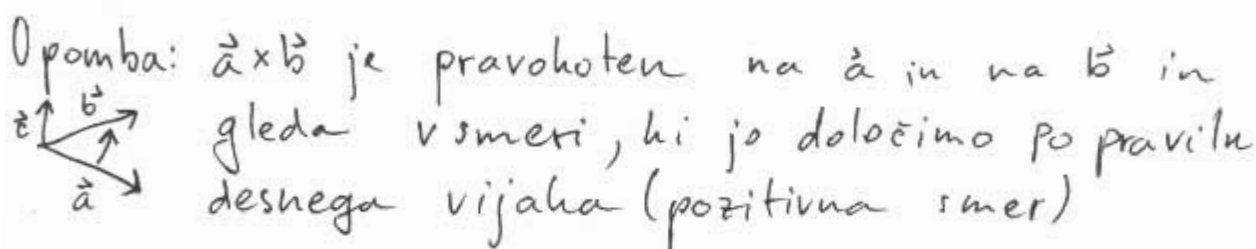 Opomba: a⃗ × b⃗ je pravokoten na a⃗ in na b⃗ in
c⃗ b⃗ gleda v smeri, ki jo določimo po pravilu
a⃗ desnega vijaka (pozitivna smer)